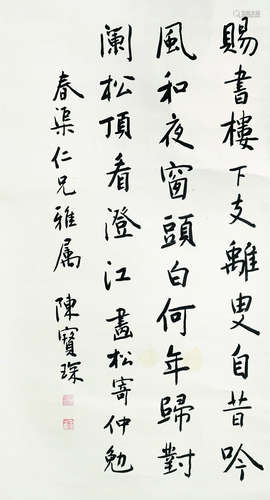 賜書樓下支離叟自昔吟
風和夜窗頭白何年歸對
闌松頂看澄江畫松寄仲勉
春渠仁兄雅属 陳寶琛